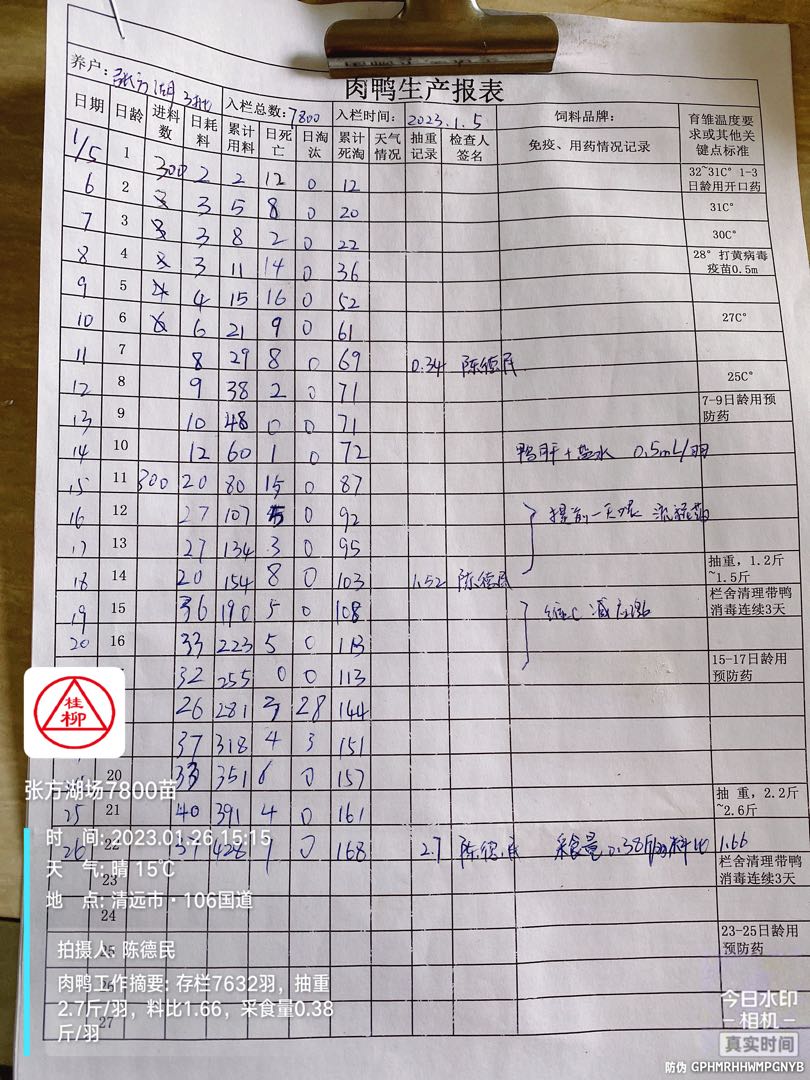 肉鸭生产报表
养户: 张方湖 3批 入栏总数: 7800 入栏时间: 2023.1.5 饲料品牌: 育雏温度要求或其他关键点标准
日期 日龄 进料数 日耗料 累计用料 日死亡 日淘汰 累计死淘 天气情况 抽重记录 检查人签名 免疫、用药情况记录
1/5 1 300 2 2 12 0 12 32~31C° 1-3日龄用开口药
6 2 3 5 8 0 20 31C°
7 3 3 8 2 0 22 30C°
8 4 3 11 14 0 36 28° 打黄病毒疫苗0.5m
9 5 4 15 16 0 52
10 6 6 21 9 0 61 27C°
11 7 8 29 8 0 69 0.34 陈德民
12 8 9 38 2 0 71 25C°
13 9 10 48 0 0 71 7-9日龄用预防药
14 10 12 60 1 0 72 鸭肝+盐水 0.5mL/羽
15 11 300 20 80 15 0 87
16 12 27 107 5 0 92 提前一天
17 13 27 134 3 0 95
18 14 20 154 8 0 103 1.52 陈德民 抽重,1.2斤~1.5斤
19 15 36 190 5 0 108 栏舍清理带鸭消毒连续3天
20 16 33 223 5 0 113
32 255 0 0 113 15-17日龄用预防药
26 281 3 28 144
37 318 4 3 151
20 33 351 6 0 157
25 21 40 391 4 0 161 抽 重, 2.2斤~2.6斤
26 22 37 428 7 0 168 2.7 陈德民 采食量0.38斤/羽 料比 1.66
23 栏舍清理带鸭消毒连续3天
24
25 23-25日龄用预防药
26
27
桂柳
张方湖场7800苗
时 间: 2023.01.26 15:15
天 气: 晴 15℃
地 点: 清远市·106国道
拍摄人: 陈德民
肉鸭工作摘要: 存栏7632羽，抽重
2.7斤/羽，料比1.66，采食量0.38
斤/羽
今日水印
-相机-
真实时间
防伪 GPHMRHHWMPGNYB